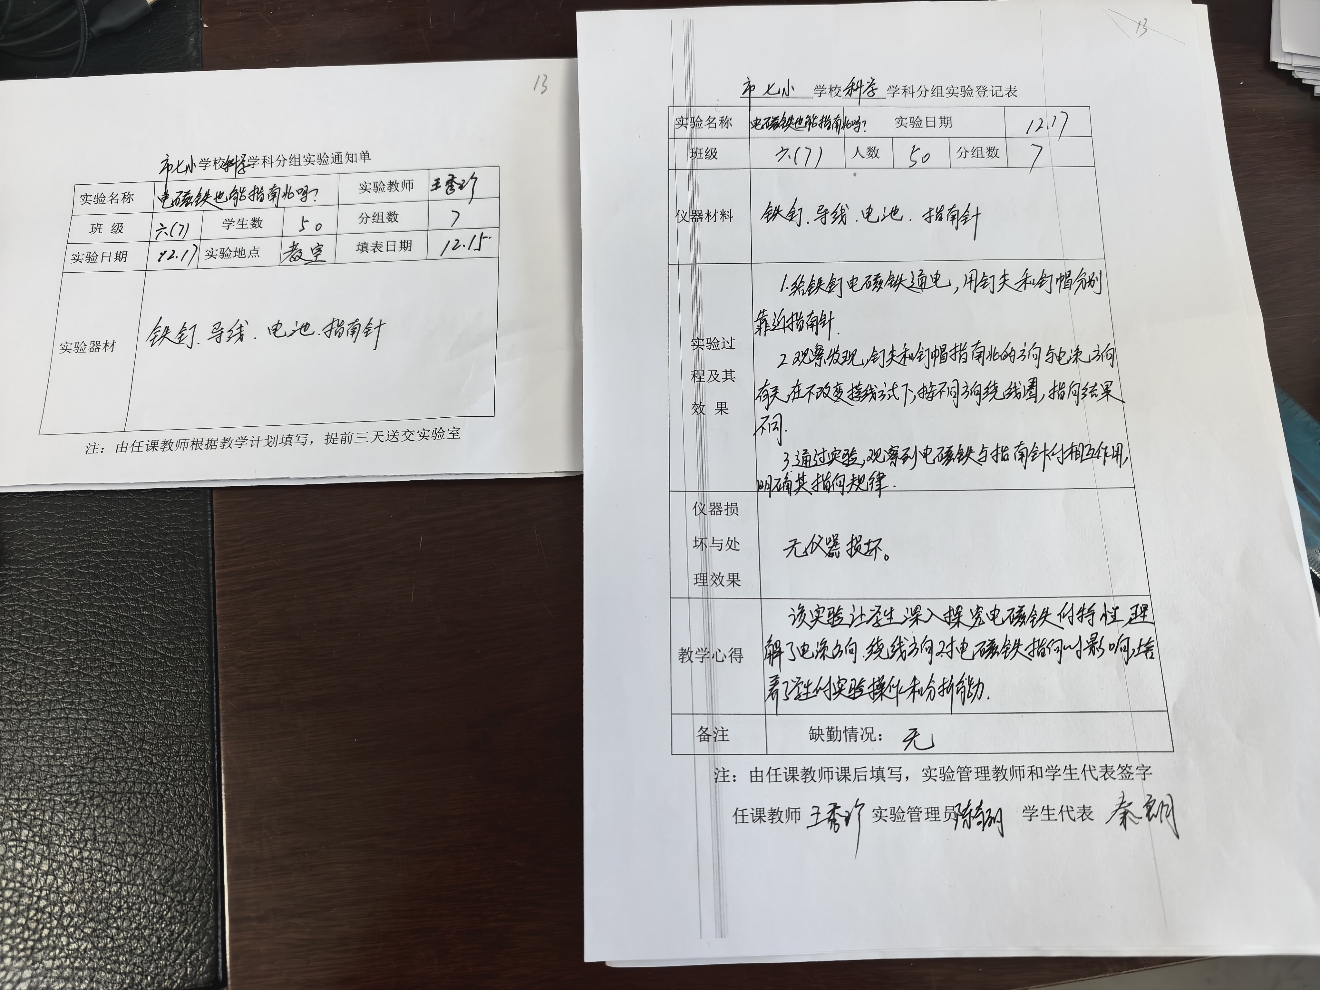 13
市七小学校科学学科分组实验通知单
实验名称 电磁铁也能指南北吗? 实验教师 王秀珍
班 级 六(7) 学生数 50 分组数 7
实验日期 12.17 实验地点 教室 填表日期 12.15
实验器材 铁钉、导线、电池、指南针
注：由任课教师根据教学计划填写，提前三天送交实验室
13
市七小 学校科学 学科分组实验登记表
实验名称 电磁铁也能指南北吗? 实验日期 12.17
班级 六(7) 人数 50 分组数 7
仪器材料 铁钉、导线、电池、指南针
实验过
程及其
效 果
1.给铁钉电磁铁通电，用钉尖和钉帽分别
靠近指南针.
2.观察发现，钉尖和钉帽指南北的方向与电流方向
有关，在不改变接线方式下，按不同方向绕线圈，指向结果
不同.
3.通过实验，观察到电磁铁与指南针的相互作用，
明确其指向规律.
仪器损
坏与处
理效果
无仪器损坏。
教学心得
该实验让学生深入探究电磁铁的特性，理
解了电流方向、绕线方向对电磁铁指向的影响，培
养了学生的实验操作和分析能力.
备注 缺勤情况： 无
注：由任课教师课后填写，实验管理教师和学生代表签字
任课教师 王秀珍 实验管理员 学生代表 秦